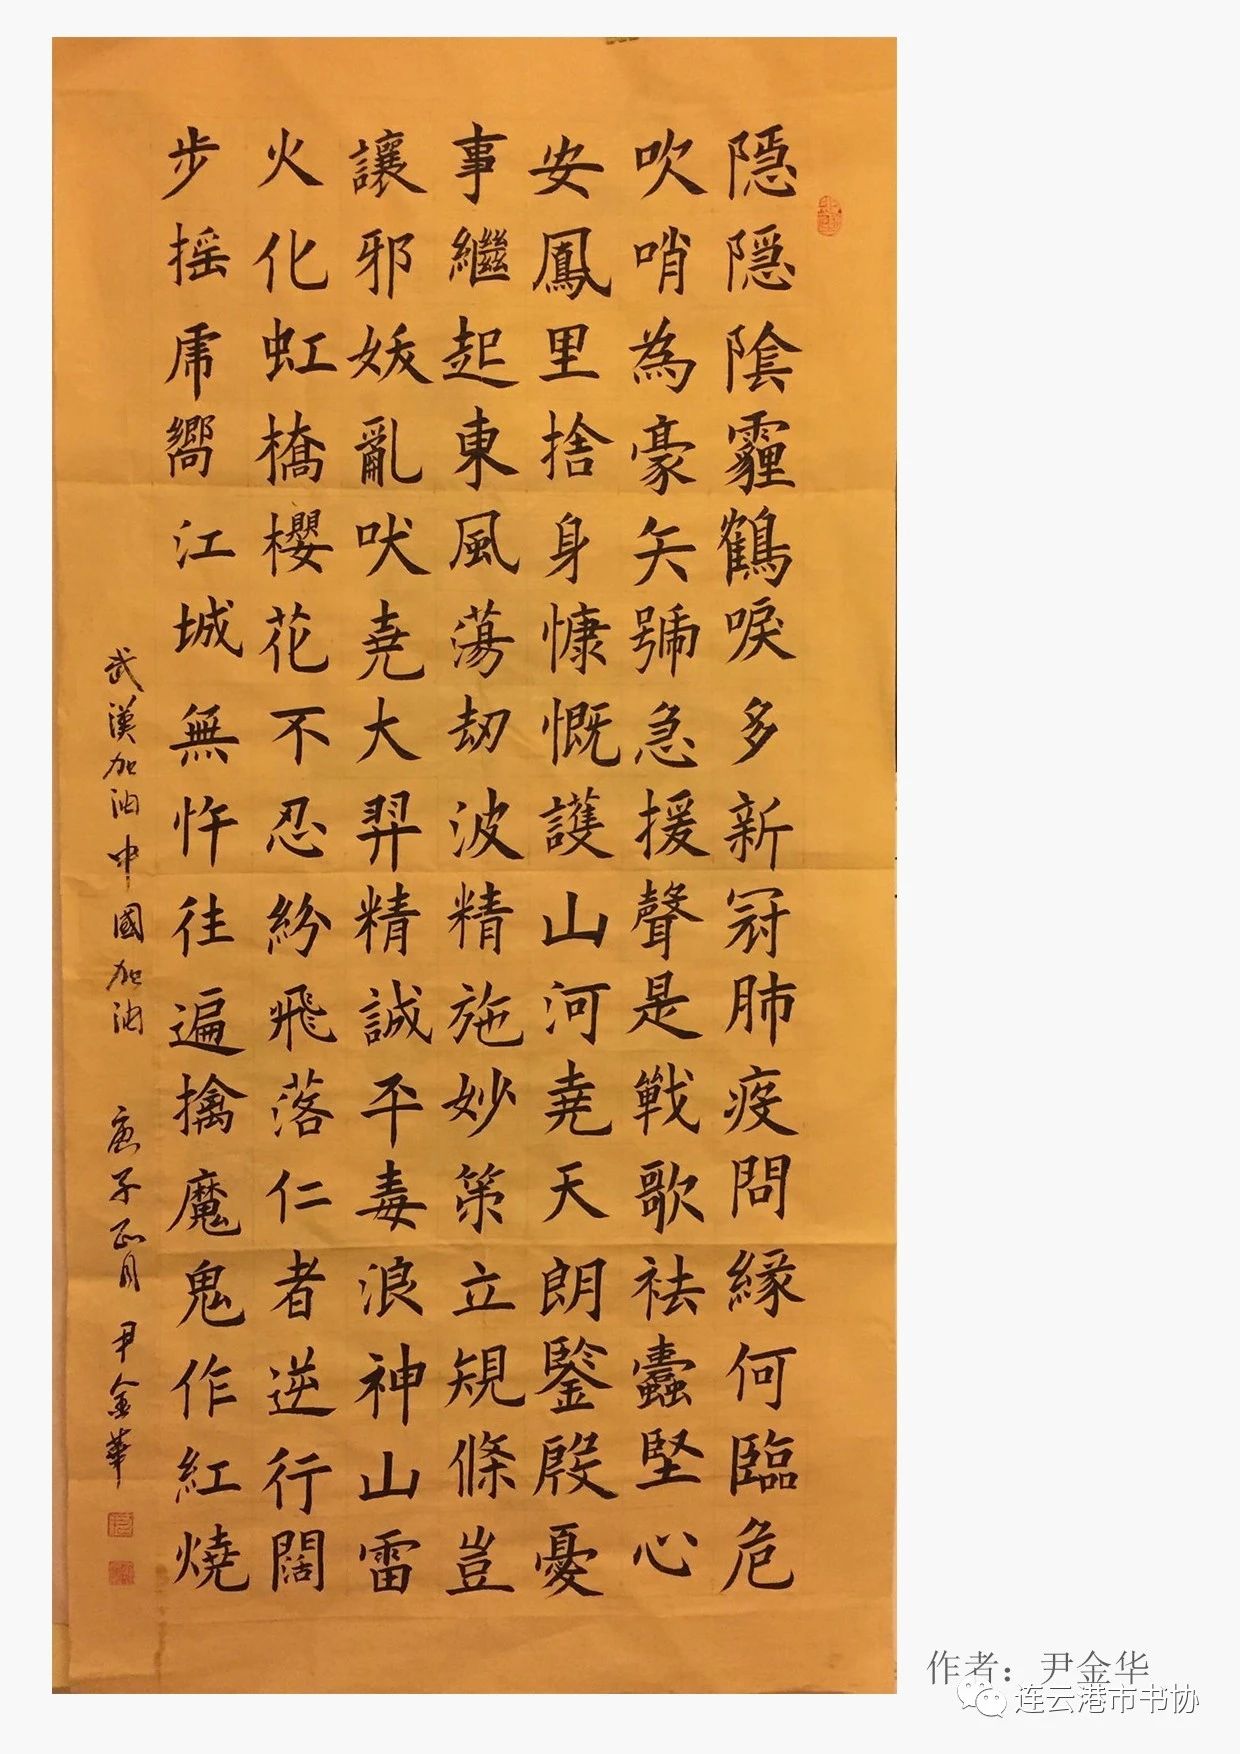 隱隱陰霾鶴唳多新冠肺疫問緣何臨危
吹哨為豪矢號急援聲是戰歌祛蠹堅心
安鳳里捨身慷慨護山河堯天朗鑒殷憂
事繼起東風蕩劫波精施妙策立規條豈
讓邪妖亂吠堯大羿精誠平毒浪神山雷
火化虹橋櫻花不忍紛飛落仁者逆行闊
步搖虎嚮江城無忤往遍擒魔鬼作紅燒
武漢加油中國加油 庚子正月 尹金華
作者：尹金华
连云港市书协